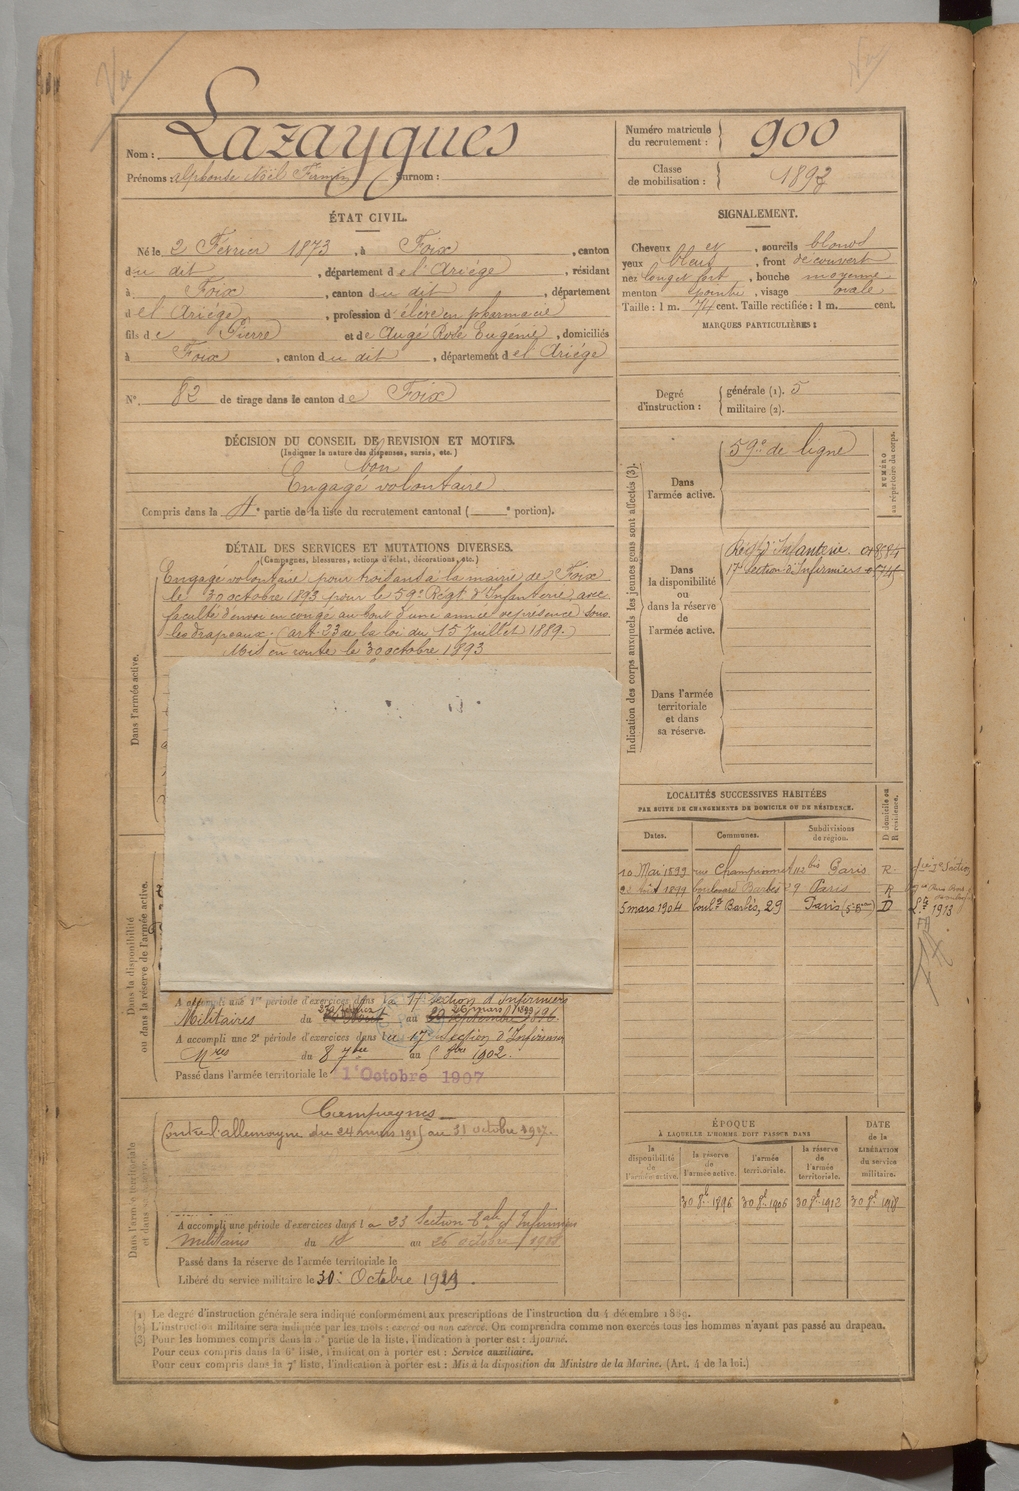 Nom : Lazaygues
Prénoms : Alphonse Noël Firmin Surnom :
Numéro matricule du recrutement : 900
Classe de mobilisation : 1892
ÉTAT CIVIL.
Né le 2 Février 1873, à Foix, canton
du dit, département de l'Ariége, résidant
à Foix, canton du dit, département
de l'Ariége, profession d'élève en pharmacie
fils de Pierre et de Augé Rose Eugénie, domiciliés
à Foix, canton du dit, département de l'Ariége
N° 82 de tirage dans le canton de Foix
SIGNALEMENT.
Cheveux et, sourcils blond
yeux bleus, front découvert
nez long et fort, bouche moyenne
menton pointu, visage ovale
Taille : 1 m. 74 cent. Taille rectifiée : 1 m. cent.
MARQUES PARTICULIÈRES :
Degré d'instruction : générale (1). 5
militaire (2).
DÉCISION DU CONSEIL DE REVISION ET MOTIFS.
(Indiquer la nature des dispenses, sursis, etc.)
bon
Engagé volontaire
Compris dans la 4e partie de la liste du recrutement cantonal ( e portion).
DÉTAIL DES SERVICES ET MUTATIONS DIVERSES.
(Campagnes, blessures, actions d'éclat, décorations, etc.)
Dans l'armée active.
Engagé volontaire pour trois ans à la mairie de Foix
le 30 octobre 1893 pour le 59e Régt d'Infanterie, avec
faculté d'envoi en congé au bout d'une année de présence sous
les drapeaux. (art. 23 de la loi du 15 Juillet 1889.)
Mis en route le 30 octobre 1893
Dans la disponibilité
ou dans la réserve de l'armée active.
A accompli une 1re période d'exercices dans la 17e Section d'Infirmiers
Militaires du au 26 mars 1899
A accompli une 2e période d'exercices dans la 17e Section d'Infirmiers
Mres du 8 7bre au 8bre 1902.
Passé dans l'armée territoriale le 1er Octobre 1907
Campagnes
Contre l'allemagne du 24 mars 1915 au 31 octobre 1917.
A accompli une période d'exercices dans la 23 Section d'Infirmiers
militaires du 18 au 26 octobre 1908
Passé dans la réserve de l'armée territoriale le
Libéré du service militaire le 30 Octobre 19
Indication des corps auxquels les jeunes gens sont affectés (3).
NUMÉRO au répertoire du corps.
Dans l'armée active.
59e de ligne
Dans la disponibilité ou dans la réserve de l'armée active.
Régt d'Infanterie
17e Section d'Infirmiers
Dans l'armée territoriale et dans sa réserve.
LOCALITÉS SUCCESSIVES HABITÉES
PAR SUITE DE CHANGEMENTS DE DOMICILE OU DE RÉSIDENCE.
Dates. Communes. Subdivisions de région. D domicile ou R résidence.
10 Mai 1899 rue Championnet 112 bis Paris R.
1899 boulevard Barbès 29 Paris R
5 mars 1904 bould Barbès, 29 Paris D
1913
ÉPOQUE
À LAQUELLE L'HOMME DOIT PASSER DANS
DATE de la LIBÉRATION du service militaire.
la disponibilité de l'armée active. la réserve de l'armée active. l'armée territoriale. la réserve de l'armée territoriale.
30 8bre 1896 30 8bre 1906 30 8bre 1912 30 8bre 1918
(1) Le degré d'instruction générale sera indiqué conformément aux prescriptions de l'instruction du 4 décembre 1889.
(2) L'instruction militaire sera indiquée par les mots : exercé ou non exercé. On comprendra comme non exercés tous les hommes n'ayant pas passé au drapeau.
(3) Pour les hommes compris dans la 5e partie de la liste, l'indication à porter est : Ajourné.
Pour ceux compris dans la 6e liste, l'indication à porter est : Service auxiliaire.
Pour ceux compris dans la 7e liste, l'indication à porter est : Mis à la disposition du Ministre de la Marine. (Art. 4 de la loi.)